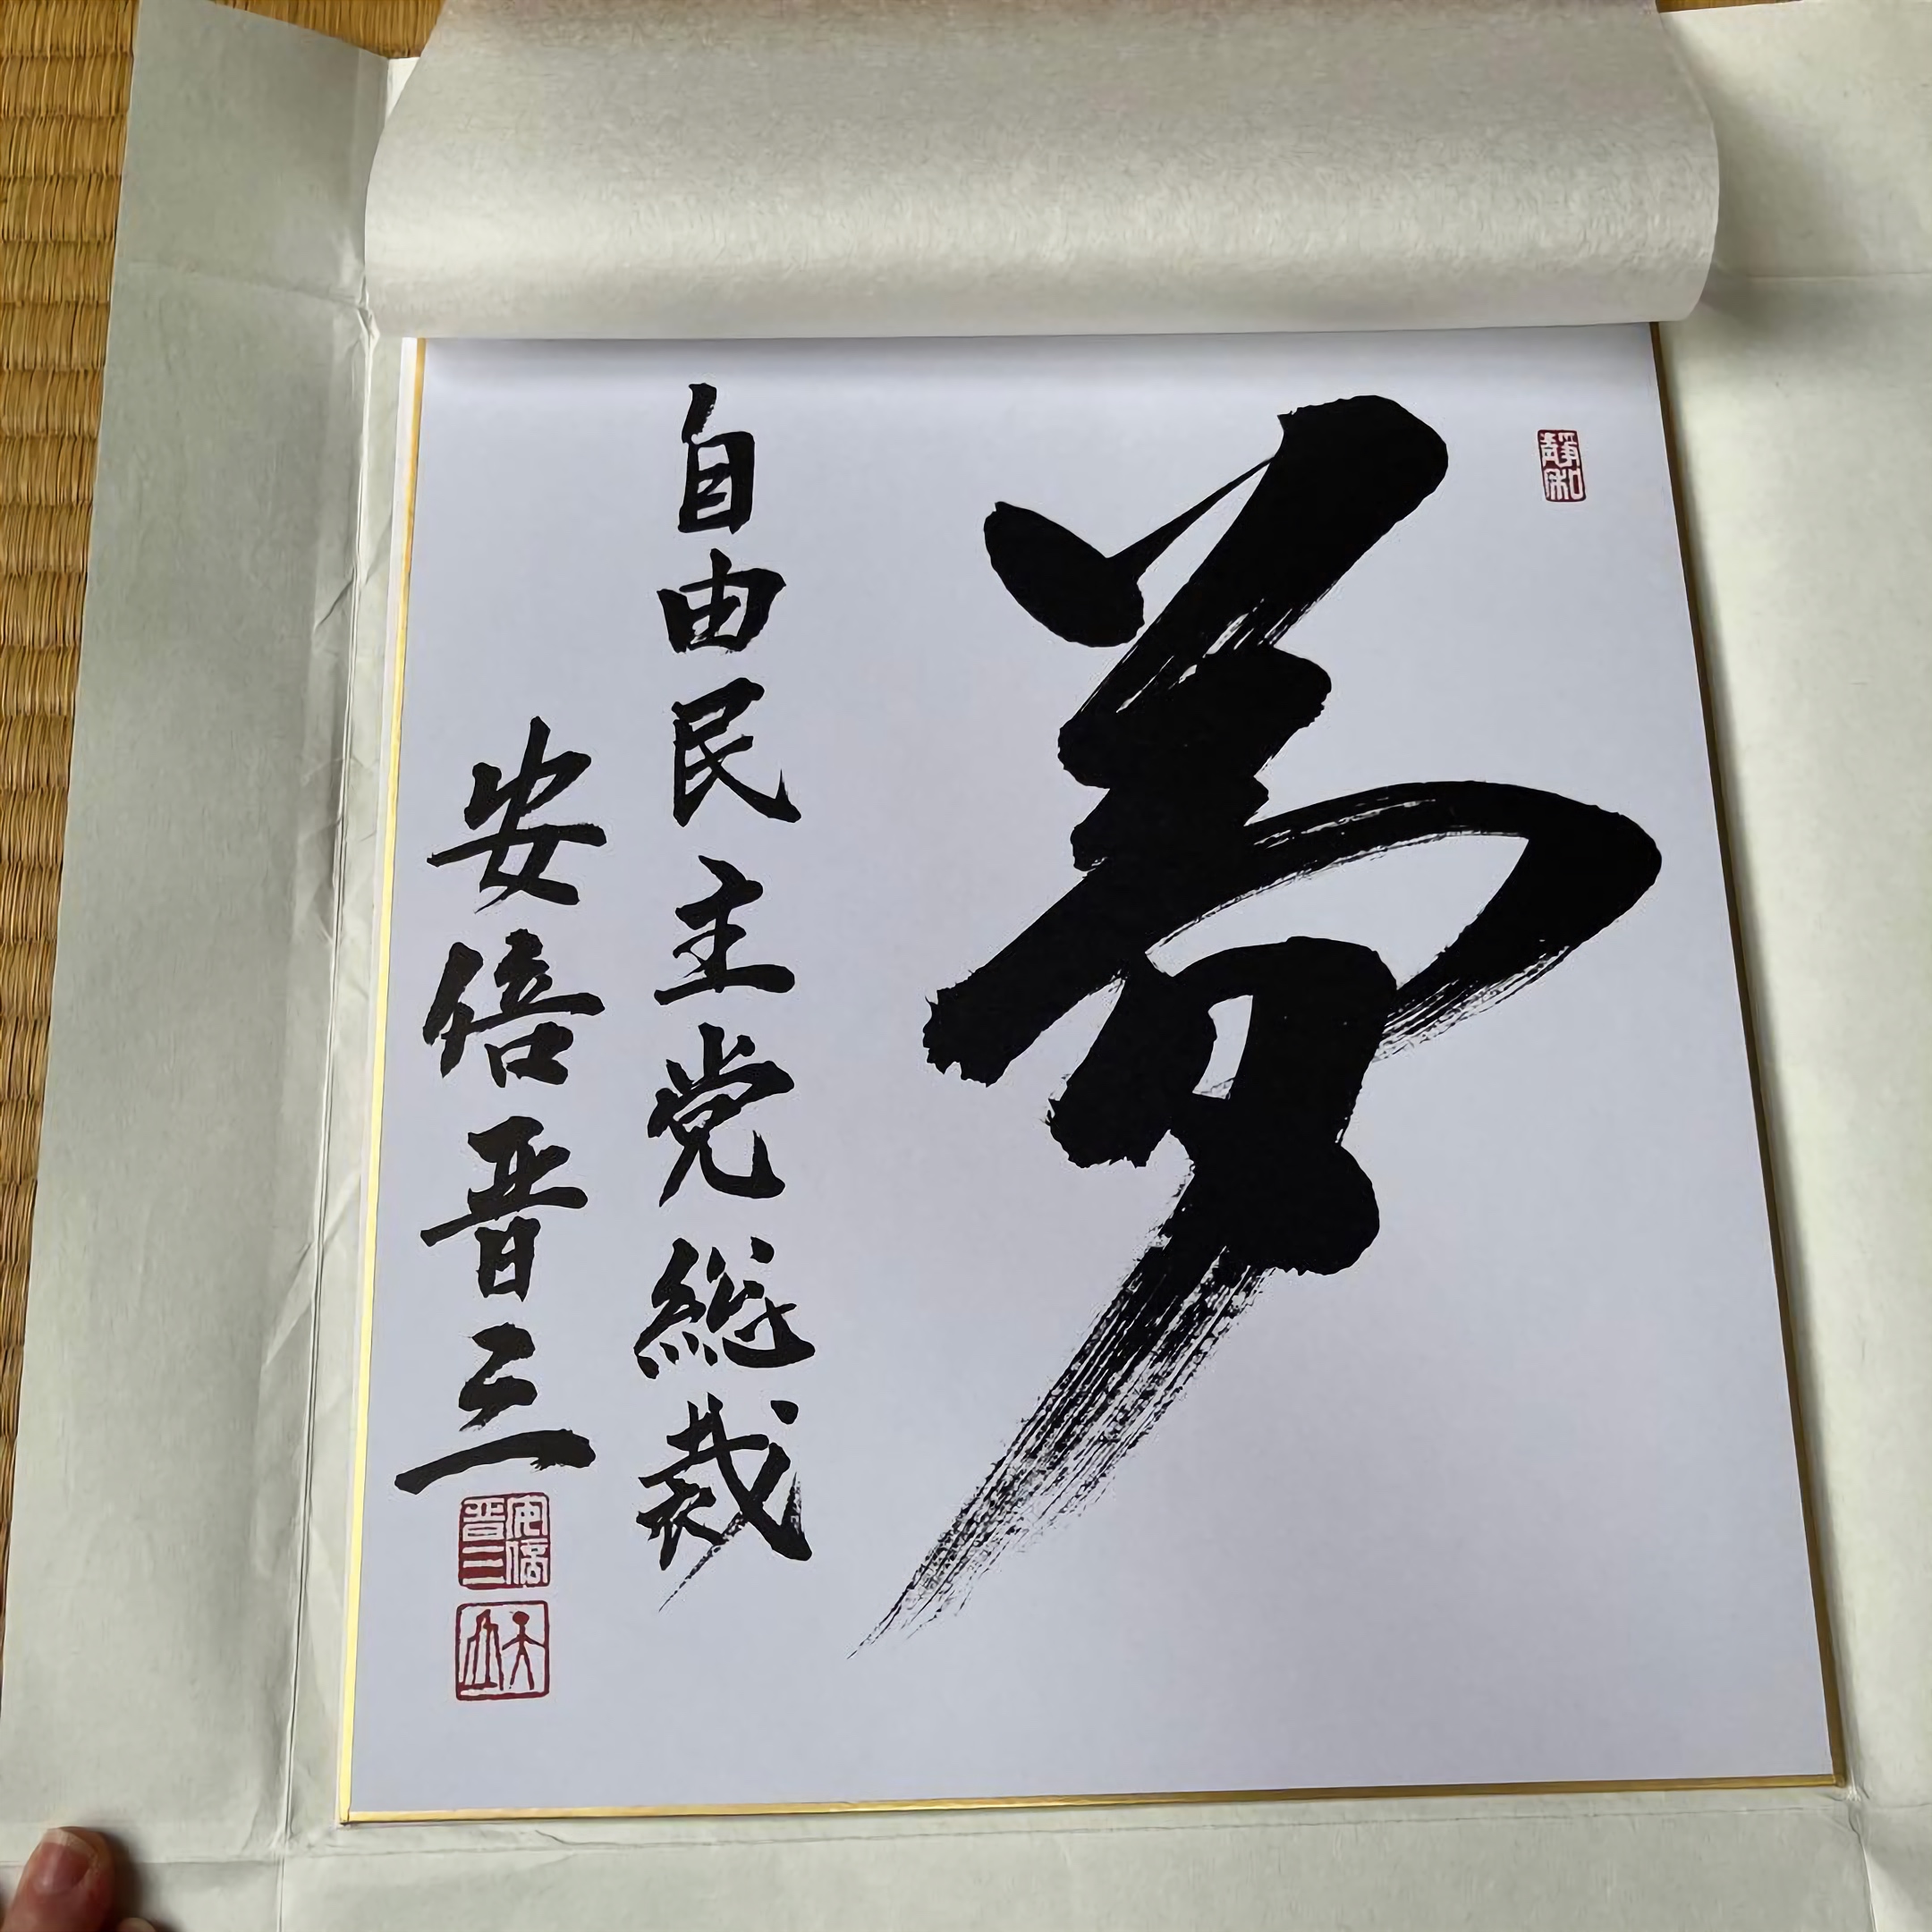 静和
夢
自由民主党総裁
安倍晋三
安倍
晋三